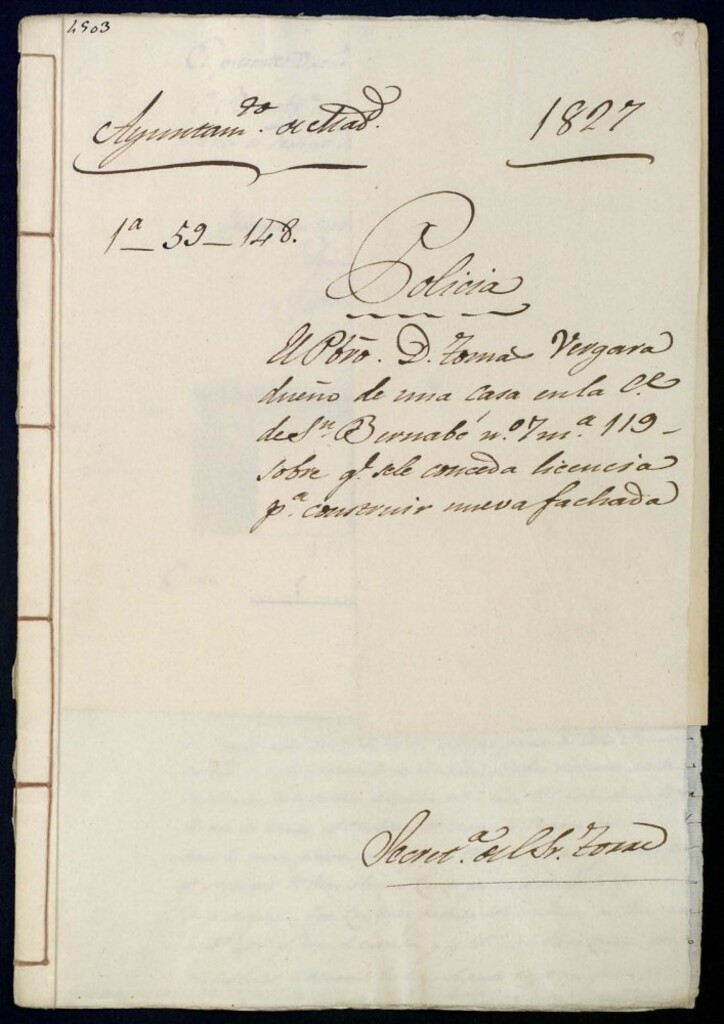 4903
Ayuntam.to de Mad.d
1827
1a_ 59_ 148.
Policia
El Pbro. D. Tomas Vergara
dueño de una casa en la C.e
de Sn Bernabé n.o 7 m.a 119_
sobre q.e se le conceda licencia
p.a construir nueva fachada
Secret.a del Sr.